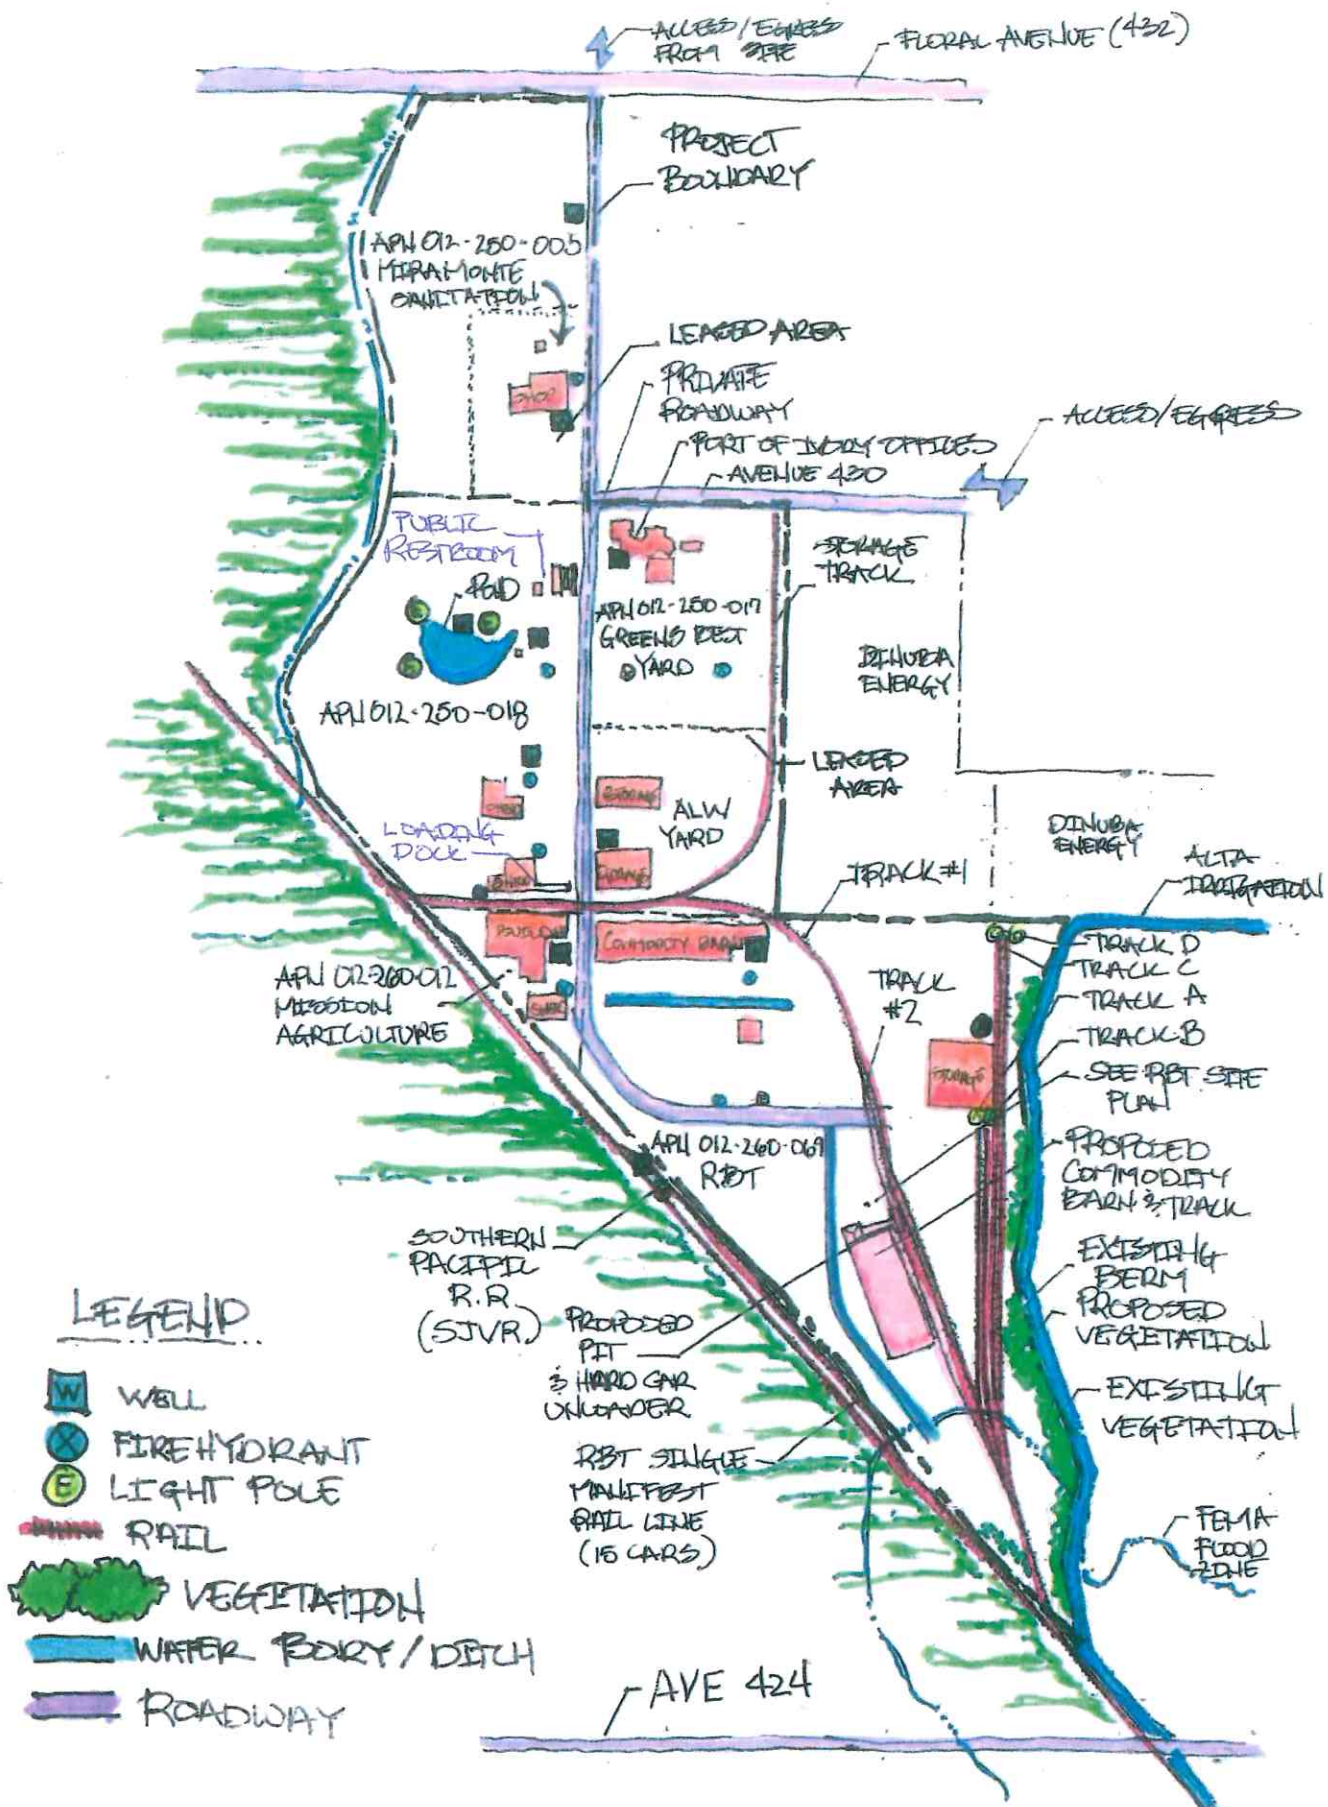 ACCESS/EGRESS
FROM SITE
FLORAL AVENUE (432)
PROJECT
BOUNDARY
APN 012-250-005
MIRAMONTE
SANITATION
LEASED AREA
SHOP
PRIVATE
ROADWAY
ACCESS/EGRESS
PORT OF IVORY OFFICES
AVENUE 430
PUBLIC
RESTROOM
POND
STORAGE
TRACK
APN 012-250-017
GREENS BEST
YARD
DINUBA
ENERGY
APN 012-250-018
LEASED
AREA
STORAGE
ALW
YARD
LOADING
DOCK
DINUBA
ENERGY
TRACK #1
ALTA
IRRIGATION
STORAGE
COMMODITY BARN
TRACK D
TRACK C
TRACK A
TRACK B
APN 012-260-012
MISSION
AGRICULTURE
TRACK
#2
STORAGE
SEE RBT SITE
PLAN
APN 012-260-069
RBT
PROPOSED
COMMODITY
BARN & TRACK
SOUTHERN
PACIFIC
R.R.
(SJVR)
EXISTING
BERM
PROPOSED
VEGETATION
PROPOSED
PIT
& HARD CAR
UNLOADER
EXISTING
VEGETATION
RBT SINGLE
MANIFEST
RAIL LINE
(15 CARS)
FEMA
FLOOD
ZONE
AVE 424
LEGEND
W WELL
X FIREHYDRANT
E LIGHT POLE
RAIL
VEGETATION
WATER BODY/DITCH
ROADWAY